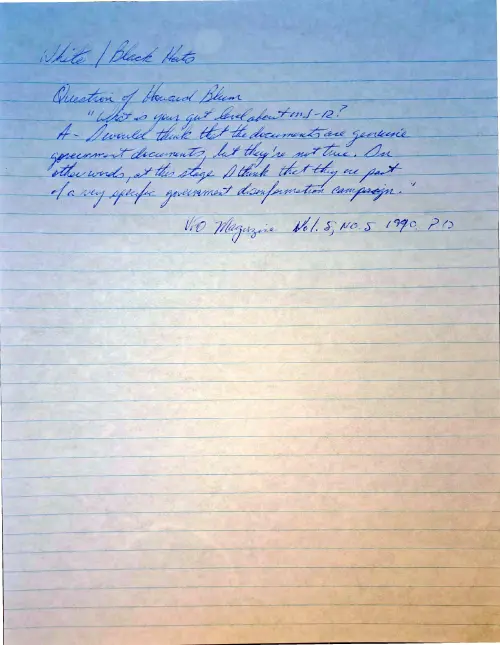 White / Black Hats
Question of Howard Blum
"What is your gut level about MJ-12?
A - I would think that the documents are genuine
government documents, but they're not true. In
other words, at this stage I think that they are part
of a very specific government disinformation campaign."
UFO Magazine Vol. 5, NO. 5 1990. P.13